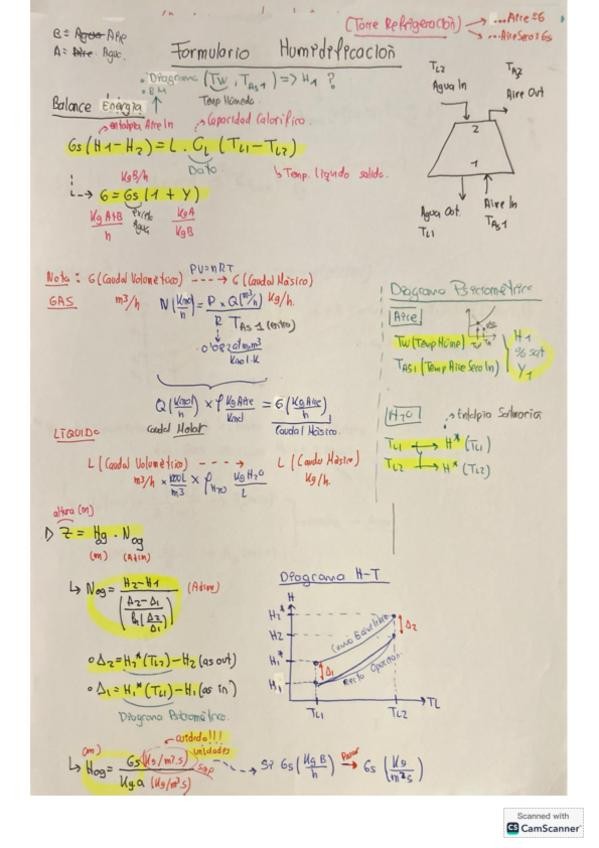 (Torre Refrigeración) → ...Aire=G
→ ...AireSeco=Gs
B = Agua Aire
A = Aire Agua
Formulario Humidificación
• Diagrama (Tw, TAS1) => H1 ?
• BM
Temp Húmedo
Balance Energía
entalpía Aire In
Capacidad Calorífica
Gs (H1 - H2) = L · CL (TL1 - TL2)
Dato
↳ Temp. líquido salida.
KgB/h
→ G = Gs (1 + Y)
KgA+B / h
Agua
KgA / KgB
TL2
Agua In
TA2
Aire Out
2
1
Agua Out
TL1
Aire In
TAS1
Nota: G (Caudal Volumétrico) PV=nRT ----→ G (Caudal Másico)
GAS
m³/h
N (Kmol/h) = P × Q(m³/h) / R TAS1 (entra)
Kg/h.
0'082 atm·m³ / Kmol·K
Q (Kmol/h) × ρ KgAire/Kmol = G (KgAire/h)
Caudal Molar
Caudal Másico.
LÍQUIDO
L (Caudal Volumétrico) ----→ L (Caudal Másico)
m³/h × 1000L/m³ × ρH2O KgH2O/L
Kg/h.
Diagrama Psicrométrico
Aire
Tw (Temp Húme)
TAS1 (Temp Aire Seco In)
H1
% sat
Y1
H2O
→ Entalpia Saturación
TL1 → H* (TL1)
TL2 → H* (TL2)
altura (m)
1) Z = Hog · Nog
(m) (Adim)
↳ Nog = H2 - H1 / (Δ2 - Δ1 / ln(Δ2/Δ1)) (Adim)
• Δ2 = H2*(TL2) - H2 (as out)
• Δ1 = H1*(TL1) - H1 (as in)
Diagrama Psicrométrico.
Diagrama H-T
H
H2*
H2
H1*
H1
Curva Equilibrio
Recta Operación
Δ1
Δ2
TL1
TL2
TL
cuidado!!!
unidades
(m)
↳ Hog = Gs (Kg/m²·s) / Ky·a (Kg/m³·s)
--→ Si Gs (KgB/h) Pasar → Gs (Kg/m²s)
Scanned with
CS CamScanner